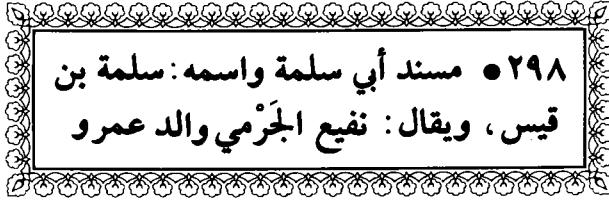 ٢٩٨ ● مسند أبي سلمة واسمه : سلمة بن
قيس ، ويقال : نفيع الجَرْمي والد عمرو